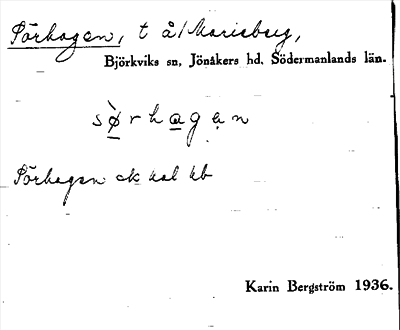 Sörhagen, t å/ Marieberg,
Björkviks sn, Jönåkers hd, Södermanlands län.
sø̀rhagạn
Sörhagen ek kal kb
Karin Bergström 1936.